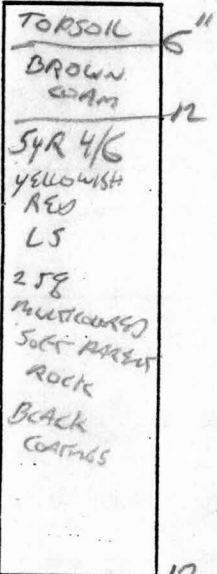 TOPSOIL
6"
BROWN
LOAM
12
5YR 4/6
YELLOWISH
RED
LS
MULTICOLORED
SOFT PARENT
ROCK
BLACK
COATINGS